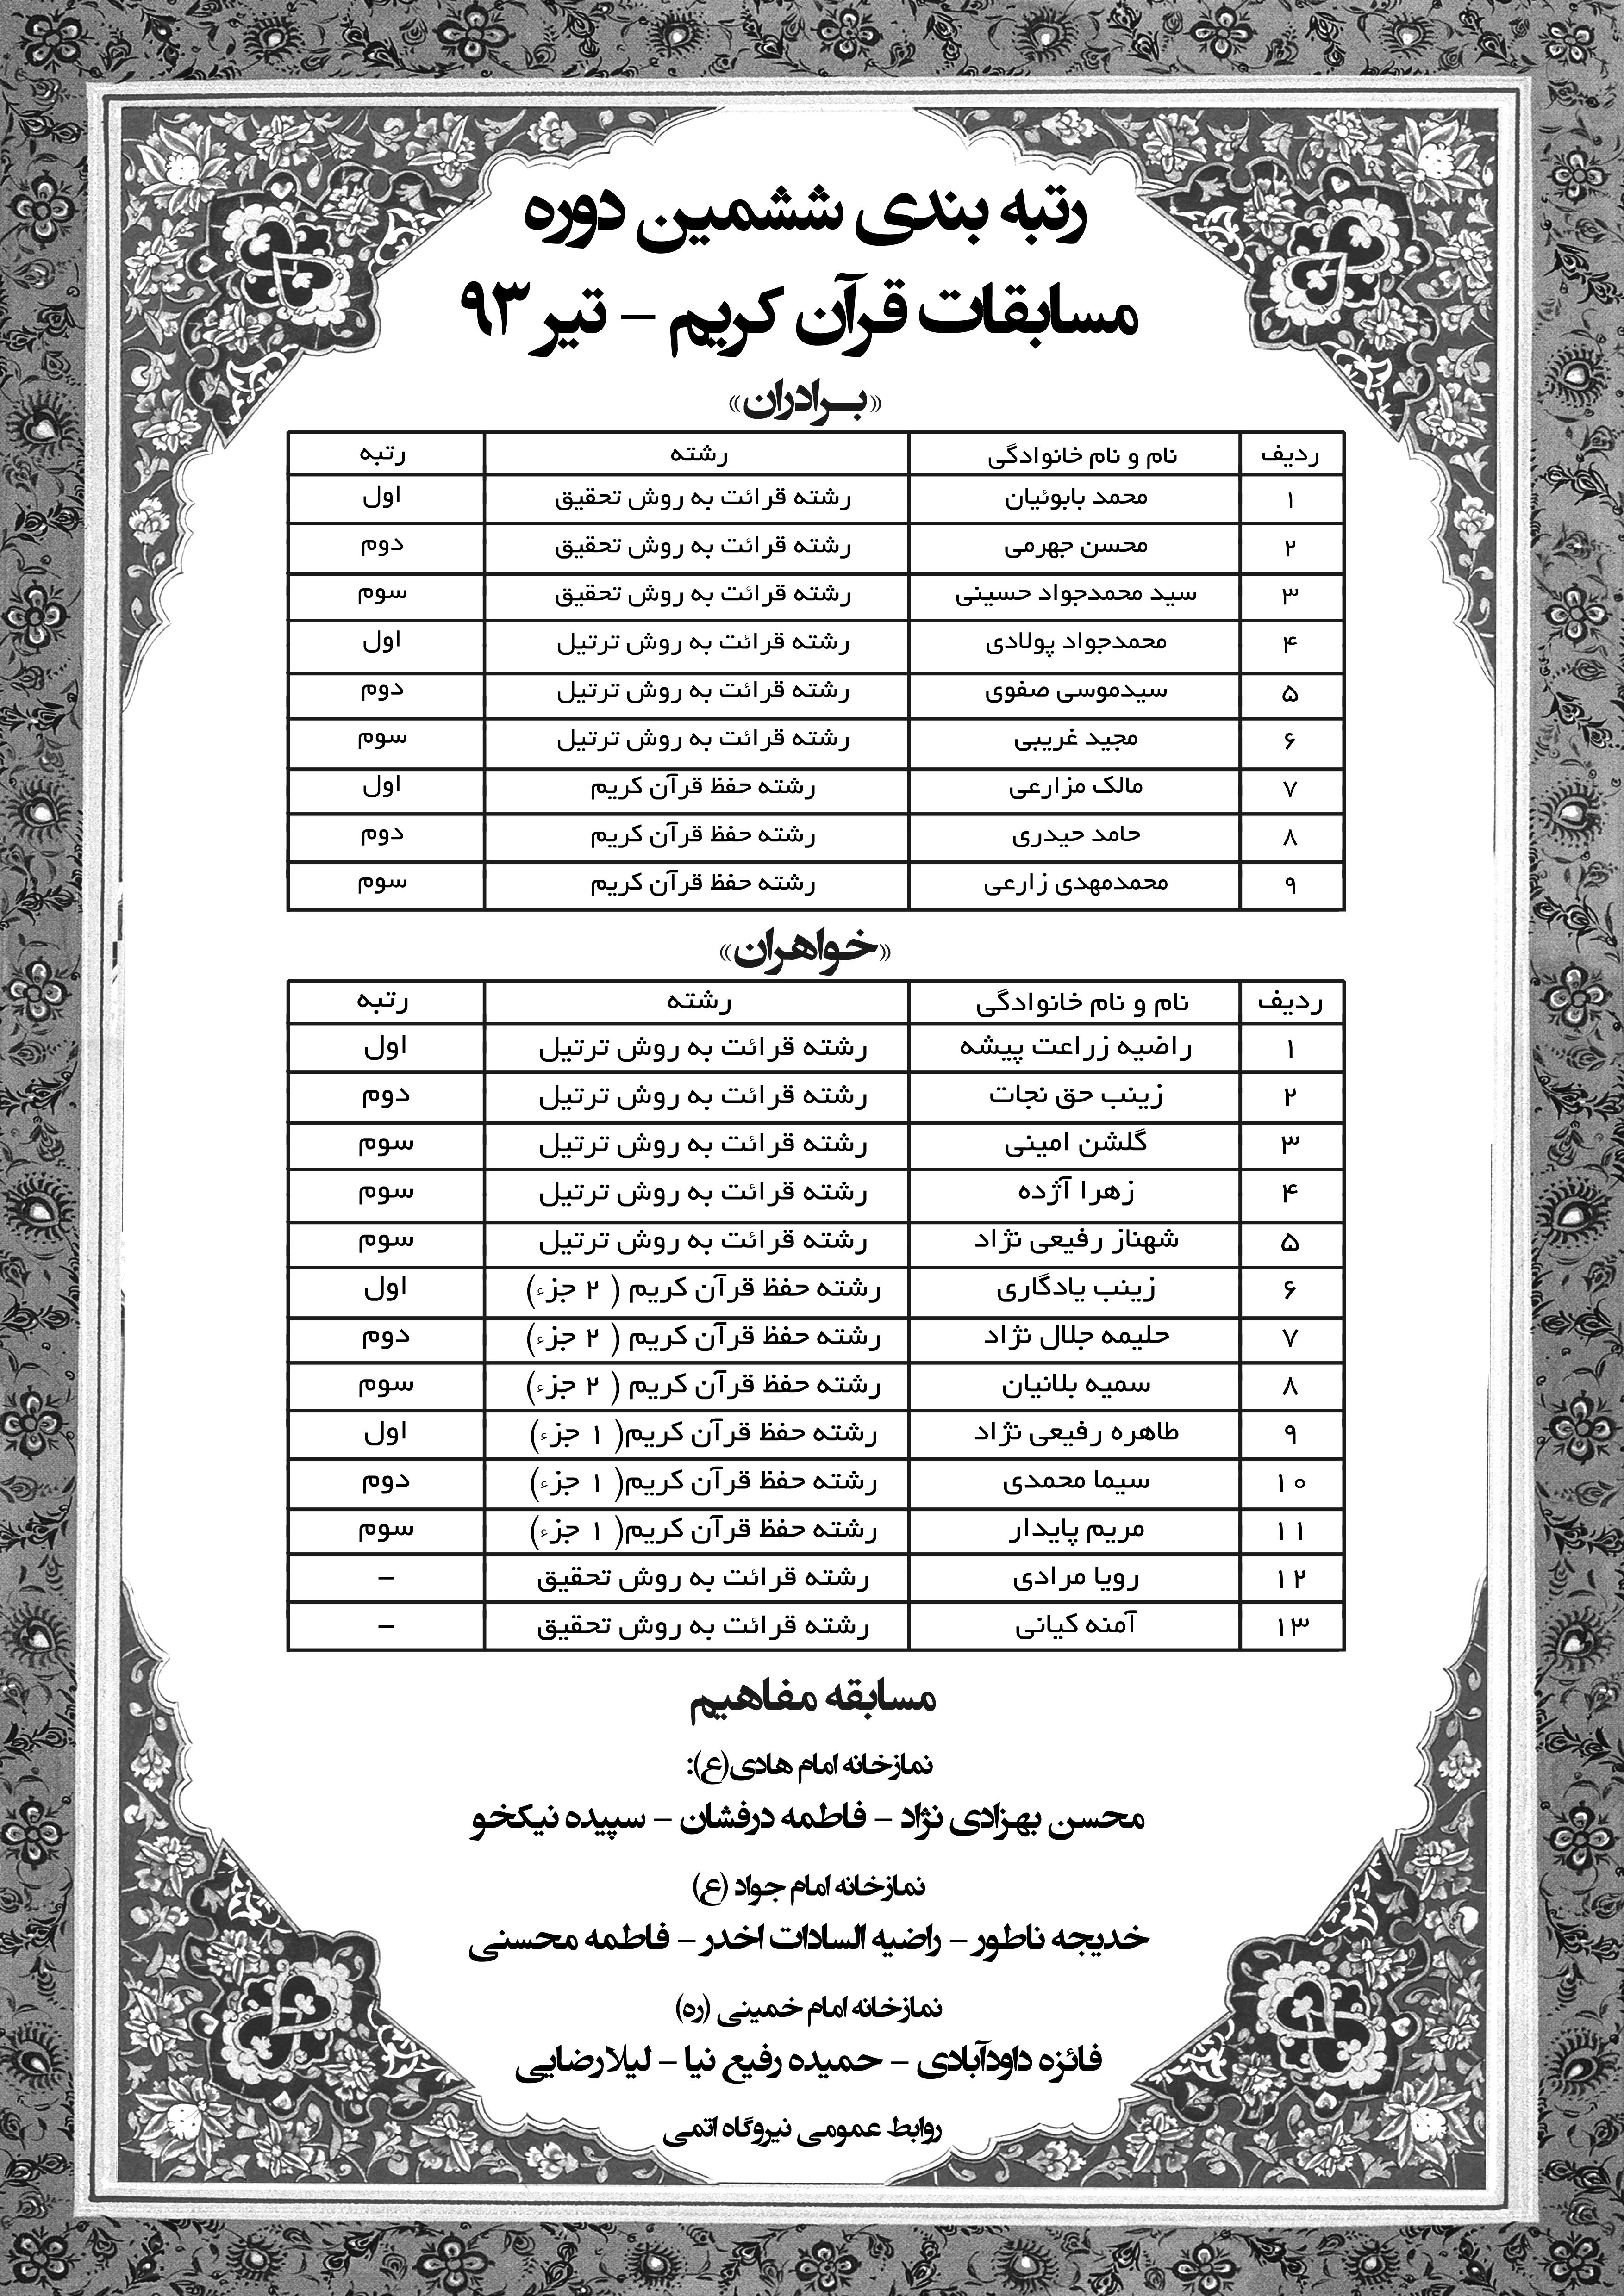 رتبه بندی ششمین دوره
مسابقات قرآن کریم – تیر ۹۳
«بـرادران»
ردیف نام و نام خانوادگی رشته رتبه
۱ محمد بابوئیان رشته قرائت به روش تحقیق اول
۲ محسن جهرمی رشته قرائت به روش تحقیق دوم
۳ سید محمدجواد حسینی رشته قرائت به روش تحقیق سوم
۴ محمدجواد پولادی رشته قرائت به روش ترتیل اول
۵ سیدموسی صفوی رشته قرائت به روش ترتیل دوم
۶ مجید غریبی رشته قرائت به روش ترتیل سوم
۷ مالک مزارعی رشته حفظ قرآن کریم اول
۸ حامد حیدری رشته حفظ قرآن کریم دوم
۹ محمدمهدی زارعی رشته حفظ قرآن کریم سوم
«خواهران»
ردیف نام و نام خانوادگی رشته رتبه
۱ راضیه زراعت پیشه رشته قرائت به روش ترتیل اول
۲ زینب حق نجات رشته قرائت به روش ترتیل دوم
۳ گلشن امینی رشته قرائت به روش ترتیل سوم
۴ زهرا آژده رشته قرائت به روش ترتیل سوم
۵ شهناز رفیعی نژاد رشته قرائت به روش ترتیل سوم
۶ زینب یادگاری رشته حفظ قرآن کریم ( ۲ جزء) اول
۷ حلیمه جلال نژاد رشته حفظ قرآن کریم ( ۲ جزء) دوم
۸ سمیه بلانیان رشته حفظ قرآن کریم ( ۲ جزء) سوم
۹ طاهره رفیعی نژاد رشته حفظ قرآن کریم( ۱ جزء) اول
۱۰ سیما محمدی رشته حفظ قرآن کریم( ۱ جزء) دوم
۱۱ مریم پایدار رشته حفظ قرآن کریم( ۱ جزء) سوم
۱۲ رویا مرادی رشته قرائت به روش تحقیق –
۱۳ آمنه کیانی رشته قرائت به روش تحقیق –
مسابقه مفاهیم
نمازخانه امام هادی(ع):
محسن بهزادی نژاد – فاطمه درفشان – سپیده نیکخو
نمازخانه امام جواد (ع)
خدیجه ناطور – راضیه السادات اخدر – فاطمه محسنی
نمازخانه امام خمینی (ره)
فائزه داودآبادی – حمیده رفیع نیا – لیلا رضایی
روابط عمومی نیروگاه اتمی